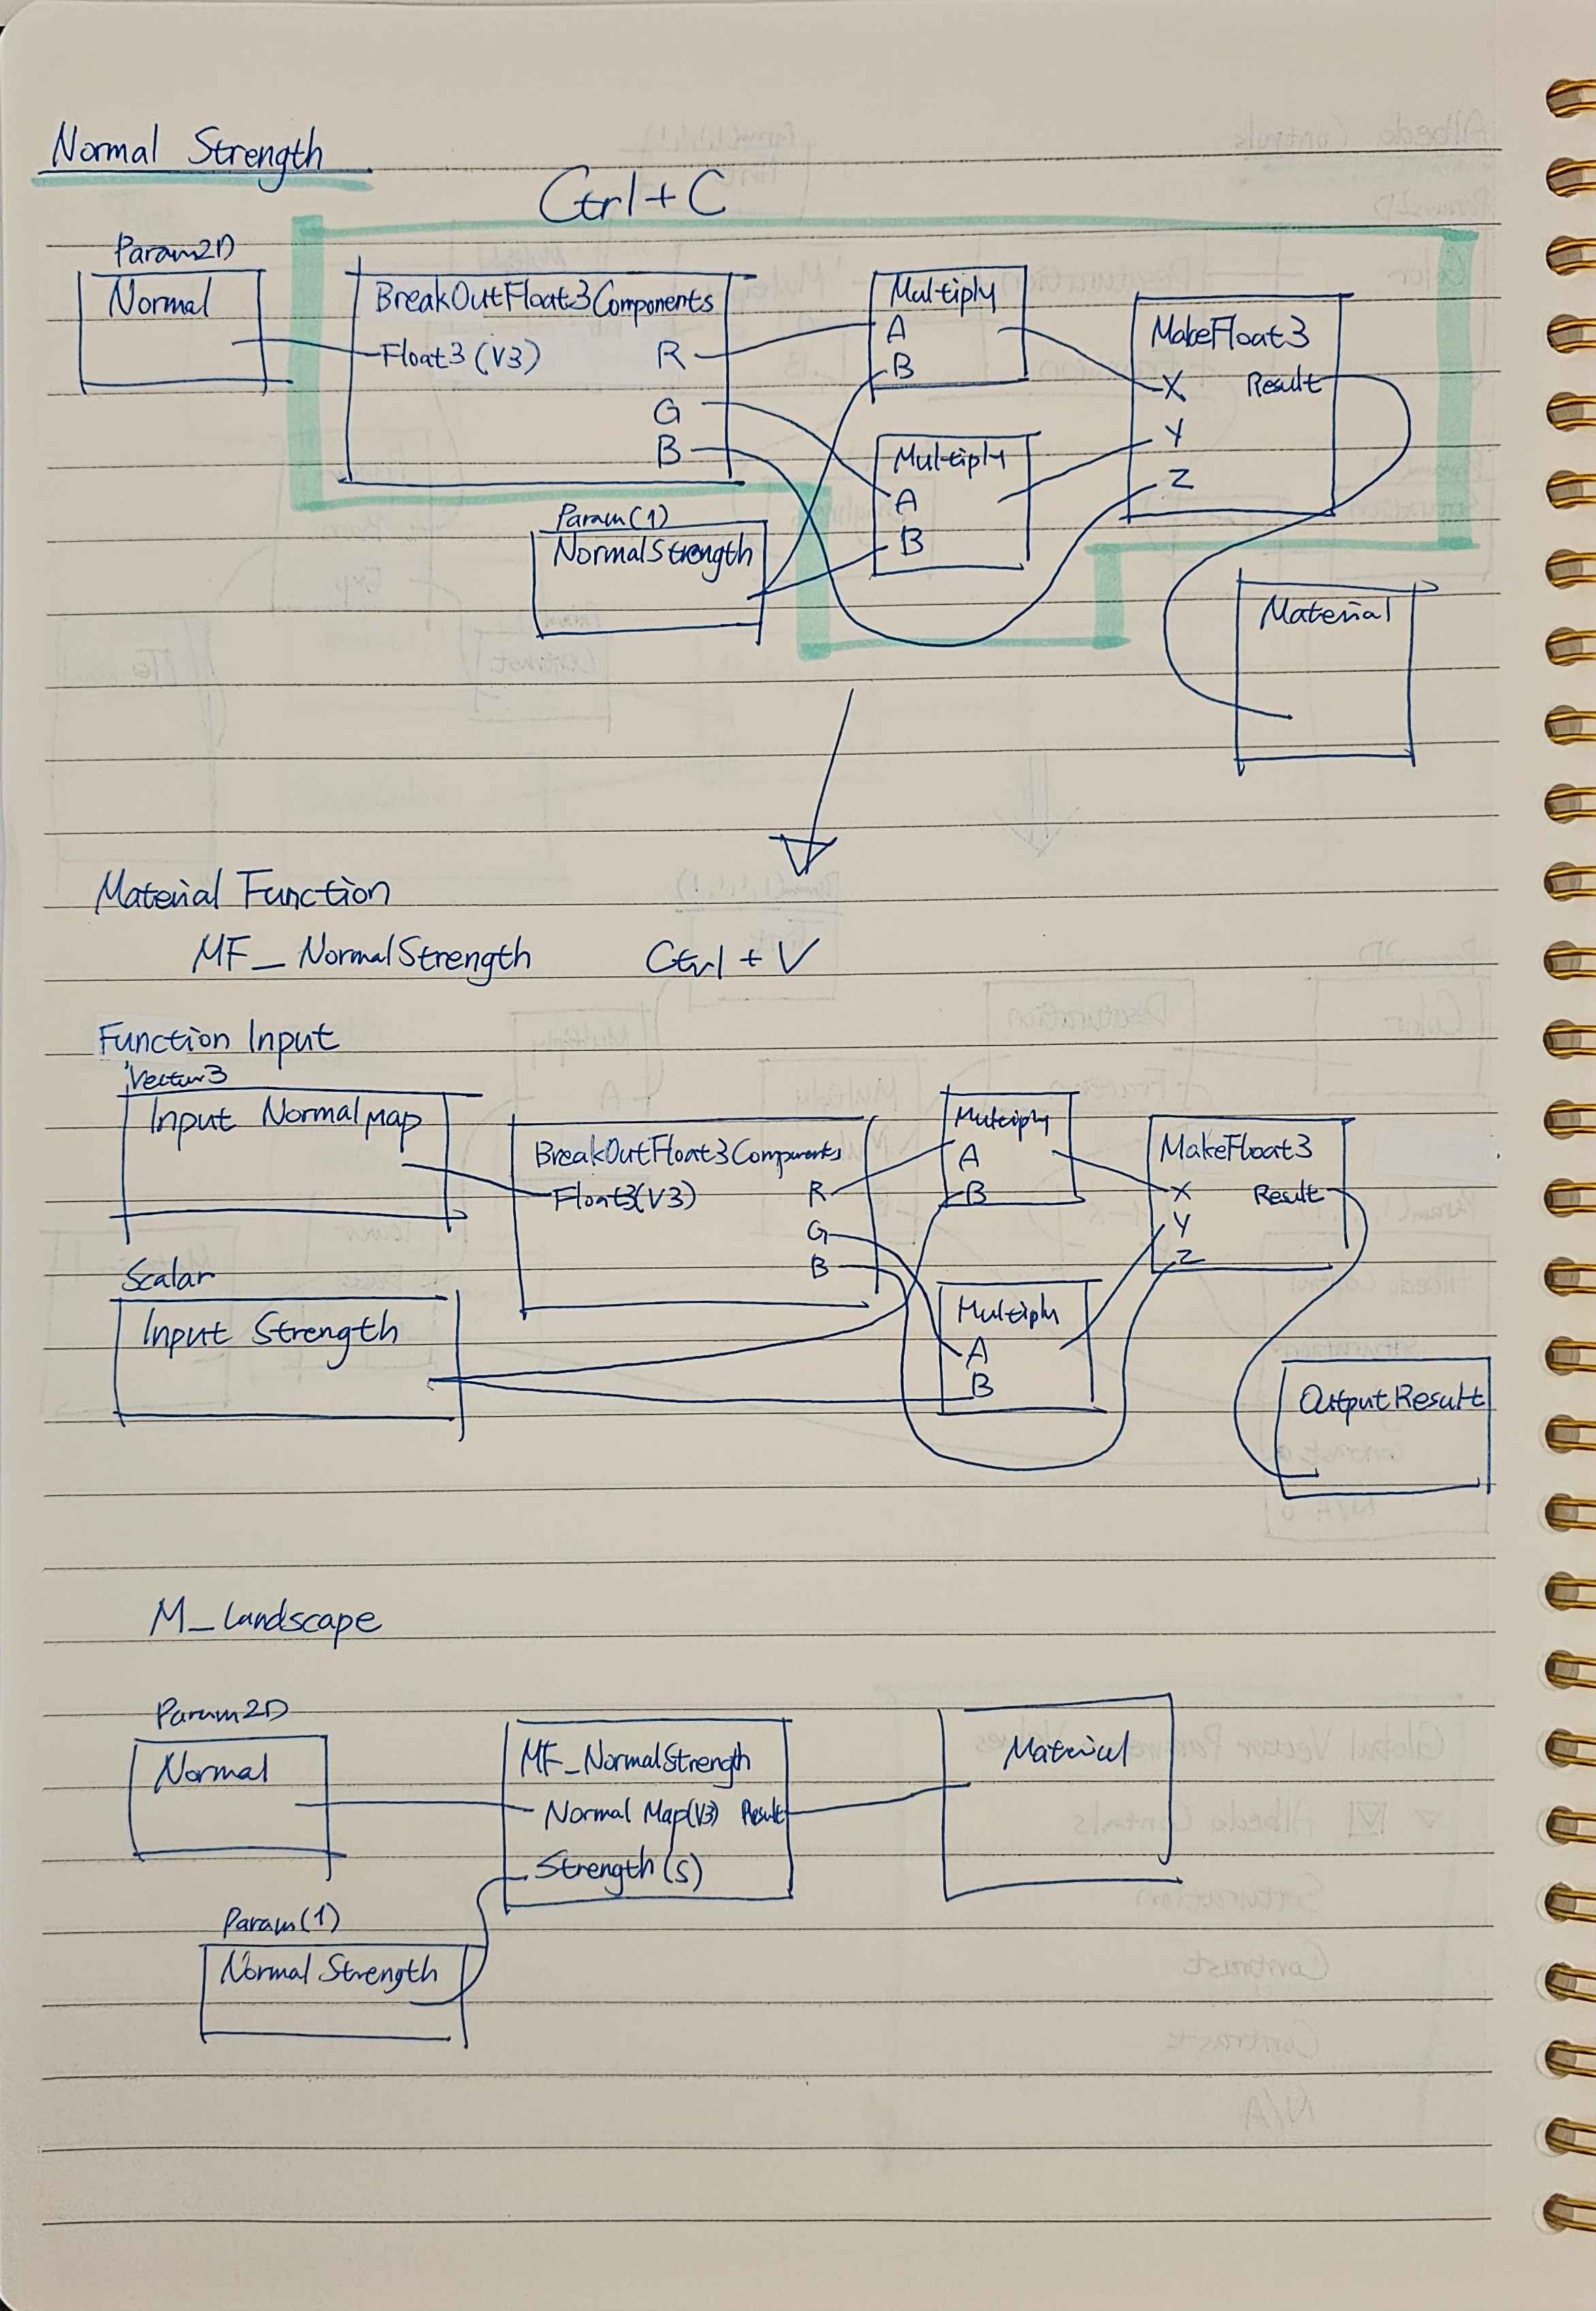 Normal Strength
Ctrl + C
Param2D
Normal
BreakOutFloat3Components
Float3 (V3) R
G
B
Multiply
A
B
Multiply
A
B
MakeFloat3
X Result
Y
Z
Param(1)
NormalStrength
Material
Material Function
MF_NormalStrength Ctrl + V
Function Input
Vector3
Input Normal Map
BreakOutFloat3Components
Float3(V3) R
G
B
Multiply
A
B
MakeFloat3
X Result
Y
Z
Scalar
Input Strength
Multiply
A
B
Output Result
M_Landscape
Param2D
Normal
MF_NormalStrength
Normal Map(V3) Result
Strength (S)
Material
Param(1)
Normal Strength